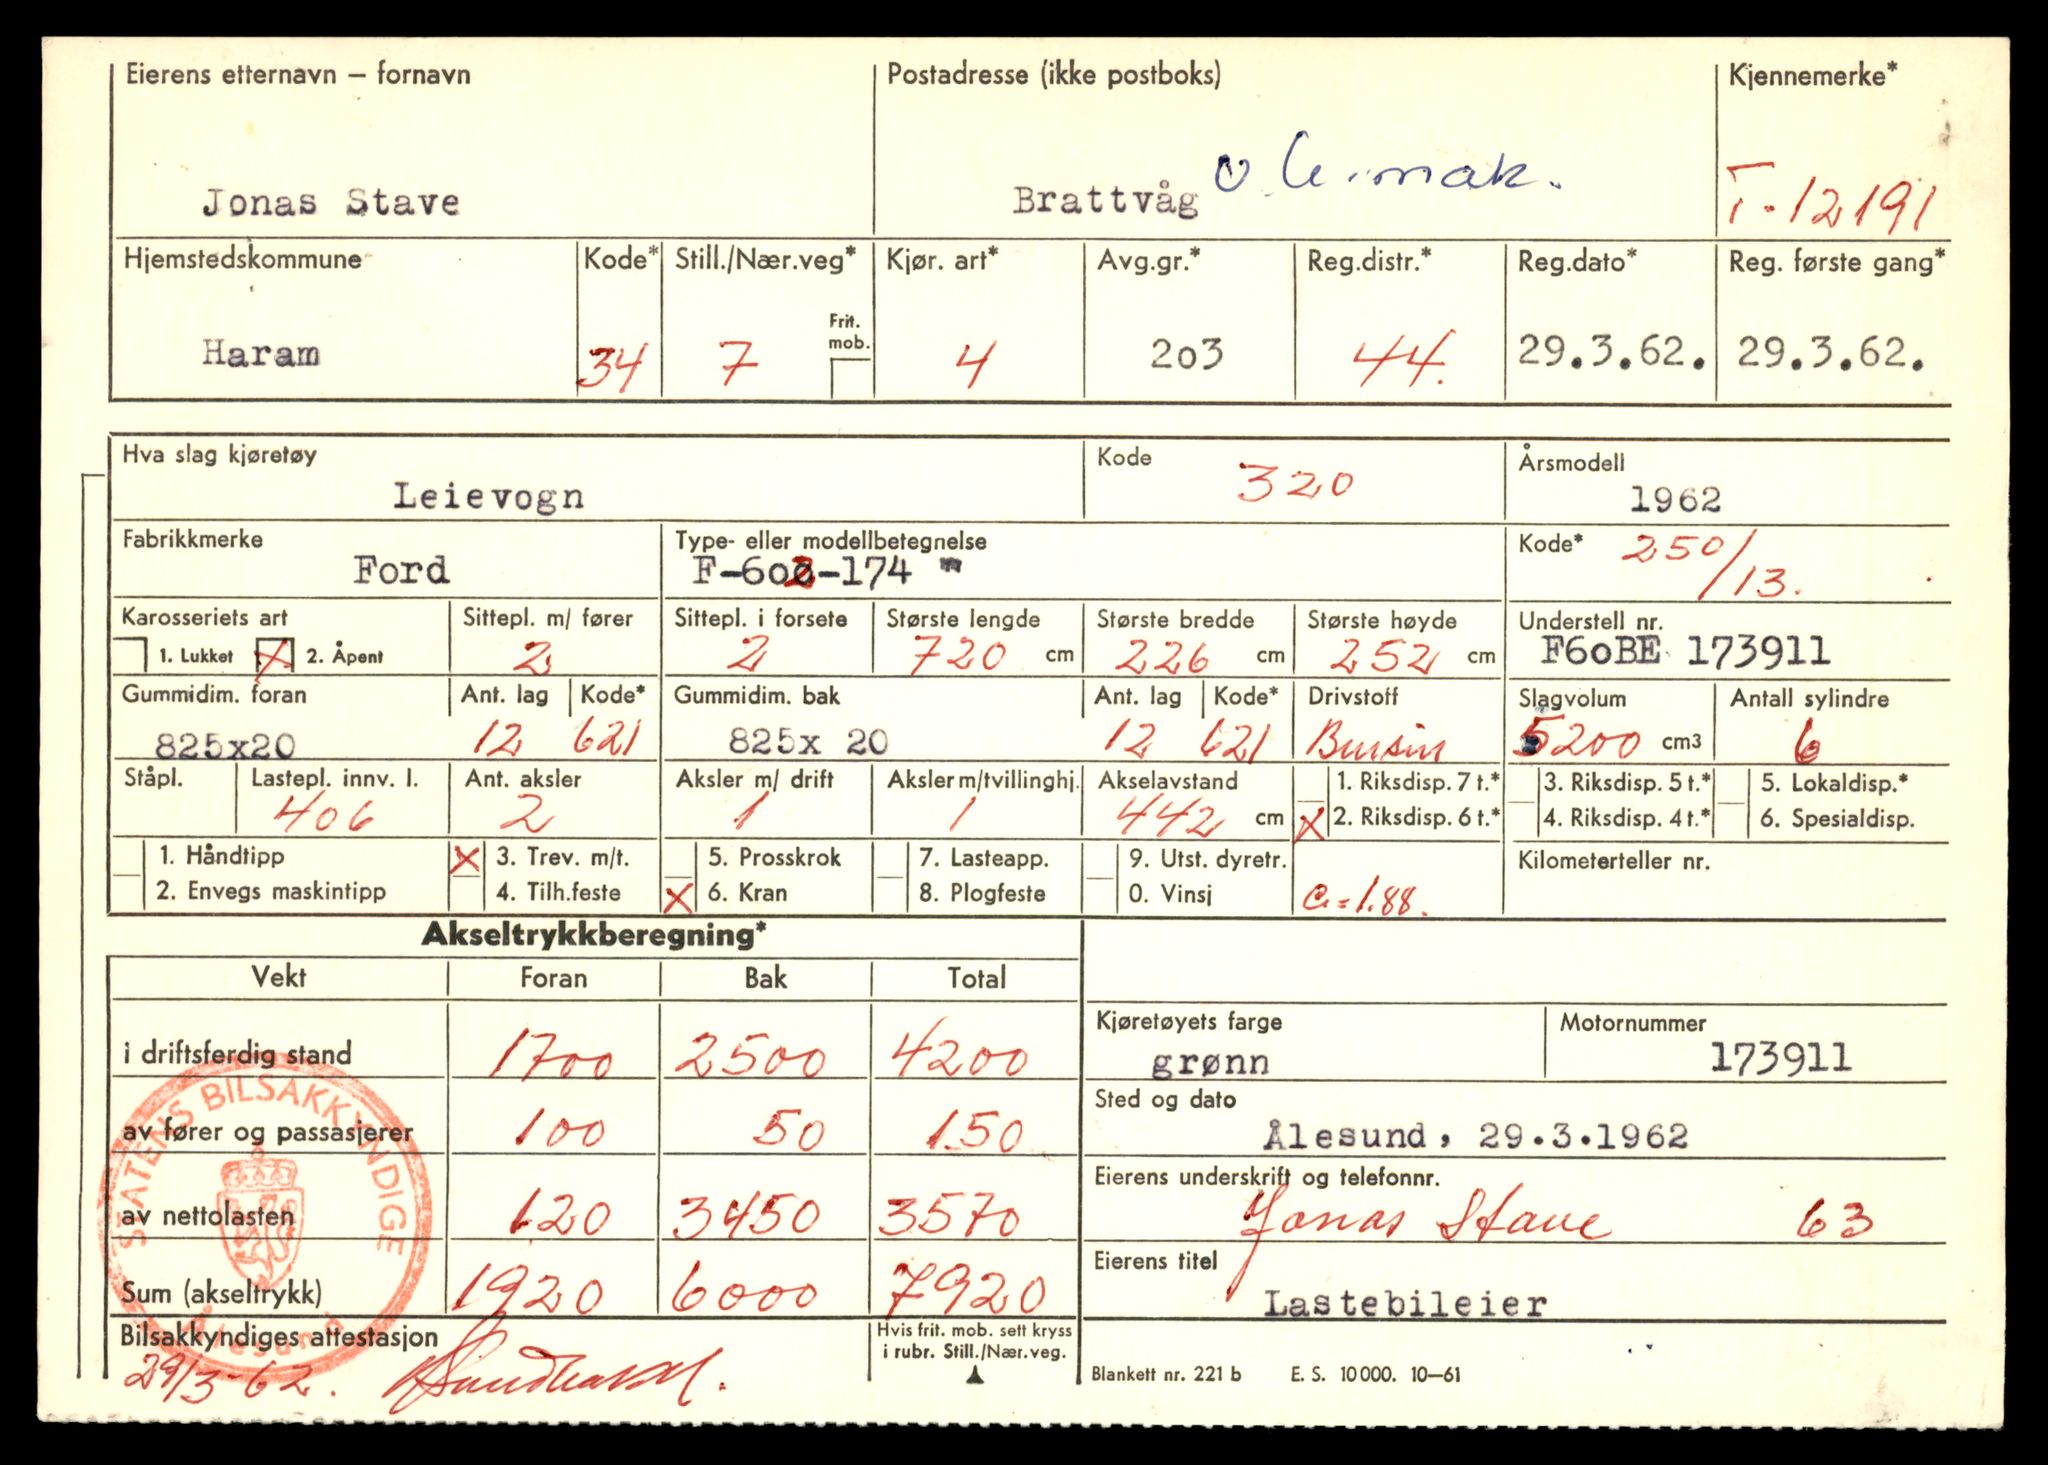 Eierens etternavn – fornavn
Postadresse (ikke postboks)
Kjennemerke*
Jonas Stave
Brattvåg
T-12191
Hjemstedskommune
Kode*
Still./Nær.veg*
Kjør. art*
Avg.gr.*
Reg.distr.*
Reg.dato*
Reg. første gang*
Frit.
mob.
Haram
34
7
4
203
44.
29.3.62.
29.3.62.
Hva slag kjøretøy
Kode
Årsmodell
Leievogn
320
1962
Fabrikkmerke
Type- eller modellbetegnelse
Kode*
Ford
F-602-174 "
250/13.
Karosseriets art
Sittepl. m/ fører
Sittepl. i forsete
Største lengde
Største bredde
Største høyde
Understell nr.
1. Lukket X 2. Åpent
2
2
720 cm
226 cm
252 cm
F60BE 173911
Gummidim. foran
Ant. lag
Kode*
Gummidim. bak
Ant. lag
Kode*
Drivstoff
Slagvolum
Antall sylindre
825x20
12
621
825x 20
12
621
Bensin
5200 cm3
6
Ståpl.
Lastepl. innv. l.
Ant. aksler
Aksler m/ drift
Aksler m/tvillinghj.
Akselavstand
406
2
1
1
442 cm
1. Riksdisp. 7 t.*
X 2. Riksdisp. 6 t.*
3. Riksdisp. 5 t.*
4. Riksdisp. 4 t.*
5. Lokaldisp.*
6. Spesialdisp.
1. Håndtipp
2. Envegs maskintipp
X 3. Trev. m/t.
4. Tilh.feste
5. Prosskrok
X 6. Kran
7. Lasteapp.
8. Plogfeste
9. Utst. dyretr.
0. Vinsj
C=1.88.
Kilometerteller nr.
Akseltrykkberegning*
Vekt Foran Bak Total
i driftsferdig stand 1700 2500 4200
av fører og passasjerer 100 50 150
av nettolasten 120 3450 3570
Sum (akseltrykk) 1920 6000 7920
Bilsakkyndiges attestasjon
29/3-62.
Hvis frit. mob. sett kryss
i rubr. Still./Nær.veg.
STATENS BILSAKKYNDIGE
Ålesund
Kjøretøyets farge
Motornummer
grønn
173911
Sted og dato
Ålesund, 29.3.1962
Eierens underskrift og telefonnr.
Jonas Stave 63
Eierens titel
Lastebileier
Blankett nr. 221 b E. S. 10 000. 10–61